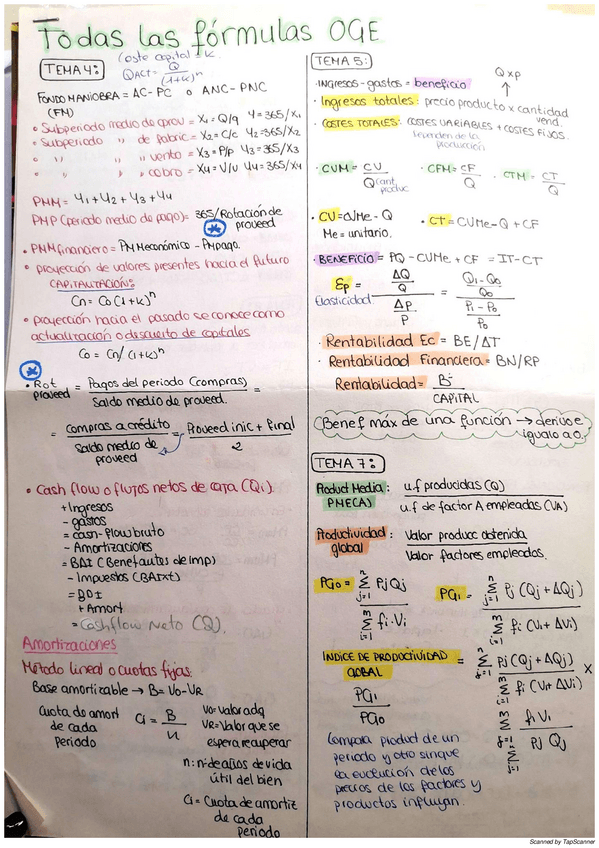 Todas las fórmulas OGE
TEMA 4:
Coste capital = k
QACT = Q / (1+k)^n
FONDO MANIOBRA = AC-PC o ANC-PNC
(FM)
• Subperiodo medio de aprov = X1 = Q/q Y = 365/X1
• Subperiodo " de fabric = X2 = C/c Y2 = 365/X2
• " " " venta = X3 = P/p Y3 = 365/X3
• " " " cobro = X4 = V/v Y4 = 365/X4
PMM = Y1 + Y2 + Y3 + Y4
PMP (periodo medio de pago) = 365/Rotación de
proveed
• PMM financiero = PM económico - PM pago.
• proyección de valores presentes hacia el futuro
CAPITALITACIÓN:
Cn = Co (1+k)^n
• proyección hacia el pasado se conoce como
actualización o descuento de capitales
Co = Cn/(1+k)^n
• Rot proveed = Pagos del periodo (compras) / Saldo medio de proveed. =
= compras a crédito / Saldo medio de proveed = Proveed inic + final / 2
• Cash flow o flujos netos de caja (Qi)
+ Ingresos
- gastos
= cash-flow bruto
- Amortizaciones
= BAI (Benef antes de Imp)
- Impuestos (BAIxt)
= BDI
+ Amort
= Cashflow Neto (Q).
Amortizaciones
Método lineal o cuotas fijas:
Base amortizable → B = V0 - VR
Cuota de amort
de cada
periodo
Ci = B / n
V0 = valor adq
VR = Valor que se
espera recuperar
n: nº de años de vida
útil del bien
Ci = Cuota de amortiz
de cada
periodo
TEMA 5:
• Ingresos - gastos = beneficio
Q x p
↑
• Ingresos totales: precio producto x cantidad
vend.
• COSTES TOTALES: COSTES VARIABLES + COSTES FIJOS.
dependen de la
producción
• CVM = CV / Q cant produc
• CFM = CF / Q
• CTM = CT / Q
• CV = CVMe - Q
Me = unitario.
• CT = CVMe - Q + CF
• BENEFICIO = PQ - CVMe + CF = IT - CT
Ep = (ΔQ / Q) / (Δp / P) = (Q1 - Q0 / Q0) / (P1 - P0 / P0)
Elasticidad
• Rentabilidad Ec = BE/AT
• Rentabilidad Financiera = BN/RP
Rentabilidad = B: / CAPITAL
(Benef máx de una función → derivo e
igualo a 0.)
TEMA 7:
Product Media: u.f producidas (Q)
PME(A) u.f de factor A empleadas (VA)
Productividad: Valor produc obtenida
global Valor factores empleados.
PG0 = Σ(j=1, n) Pj Qj / Σ(i=1, m) fi · Vi
PG1 = Σ(j=1, n) Pj (Qj + ΔQj) / Σ(i=1, m) fi (Vi + ΔVi)
INDICE DE PRODUCTIVIDAD
GLOBAL
PG1 / PG0
= Σ(j=1, n) Pj (Qj + ΔQj) / Σ(i=1, m) fi (Vi + ΔVi) x
Σ fi Vi / Σ(j=1, n) Pj Qj
Compara product de un
periodo y otro sin que
la evolución de los
precios de los factores y
productos influyan.
Scanned by TapScanner